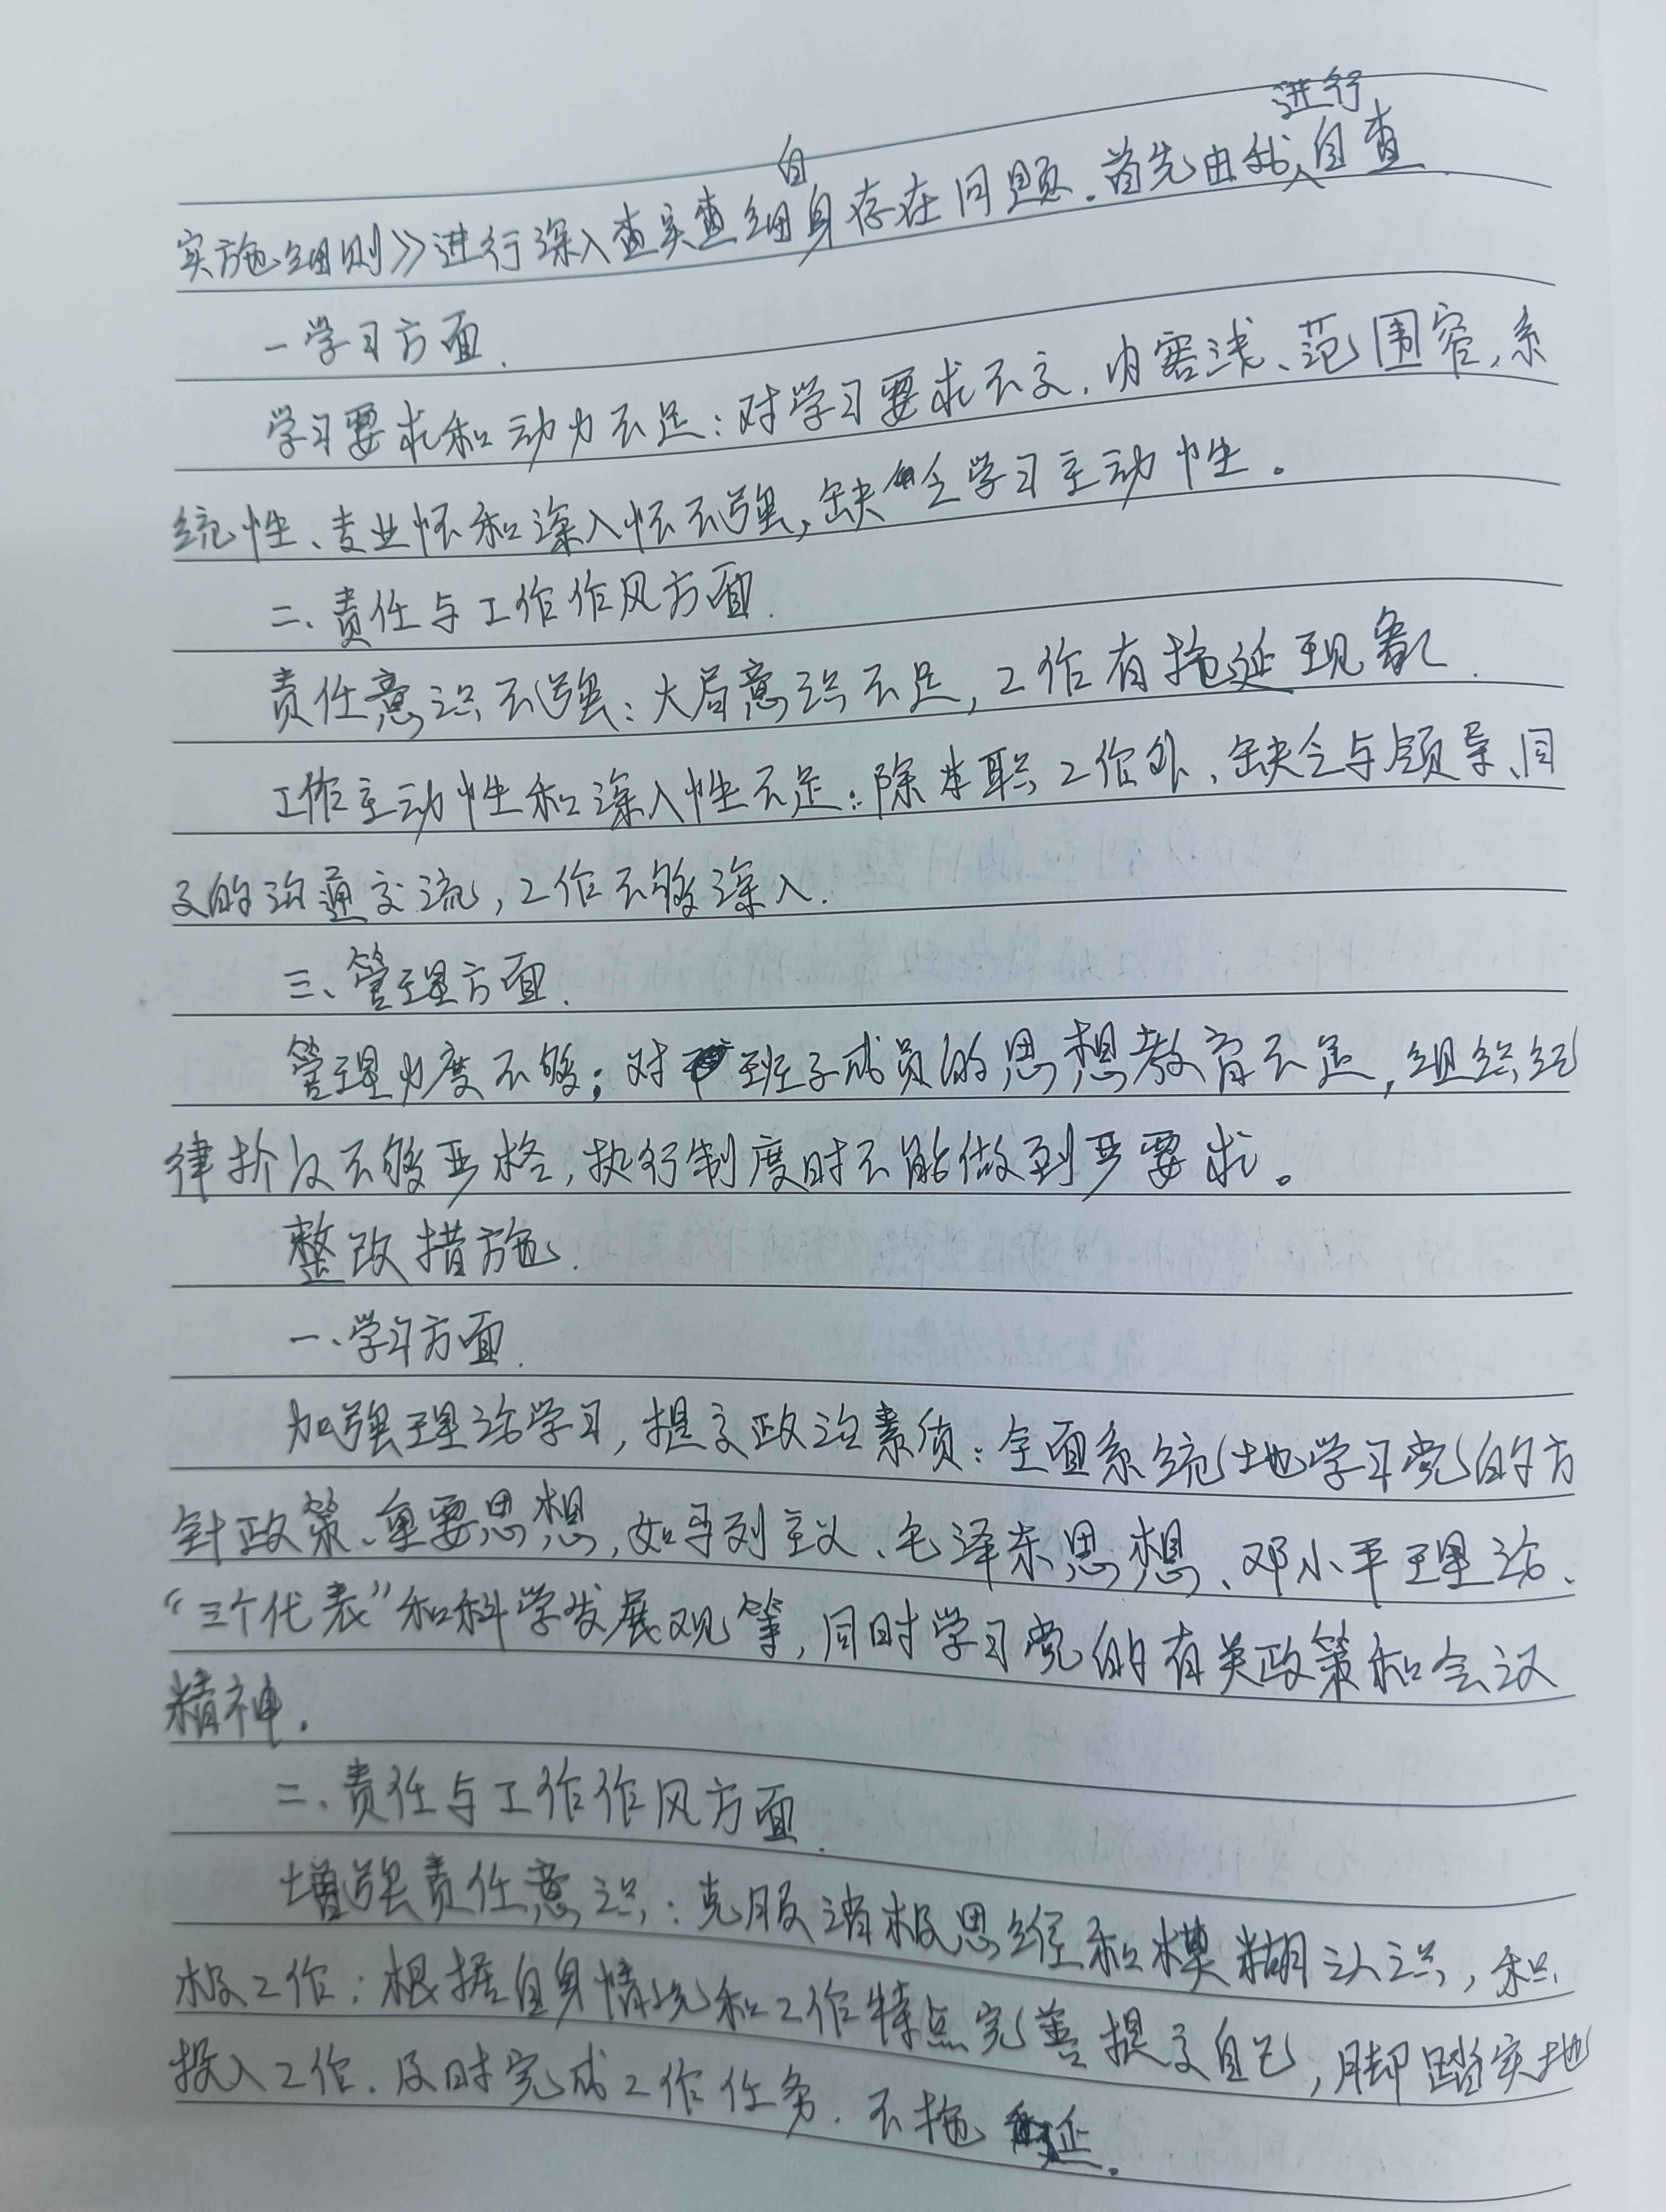 实施细则》进行深入查实查细自身存在问题.首先由我进行自查.
一学习方面.
学习要求和动力不足:对学习要求不高,内容浅、范围窄,系
统性、专业性和深入性不强,缺乏学习主动性。
二、责任与工作作风方面.
责任意识不强:大局意识不足,工作有拖延现象.
工作主动性和深入性不足:除本职工作外、缺乏与领导、同
志的沟通交流,工作不够深入.
三、管理方面.
管理力度不够;对班子成员的思想教育不足,组织纪
律抓及不够严格,执行制度时不能做到严要求。
整改措施.
一、学习方面.
加强理论学习,提高政治素质:全面系统地学习党的方
针政策、重要思想,如马列主义、毛泽东思想、邓小平理论、
“三个代表”和科学发展观等,同时学习党的有关政策和会议
精神.
二、责任与工作作风方面.
增强责任意识:克服消极思维和模糊认识,积
极工作;根据自身情况和工作特点完善提高自己,脚踏实地
投入工作.及时完成工作任务.不拖延.